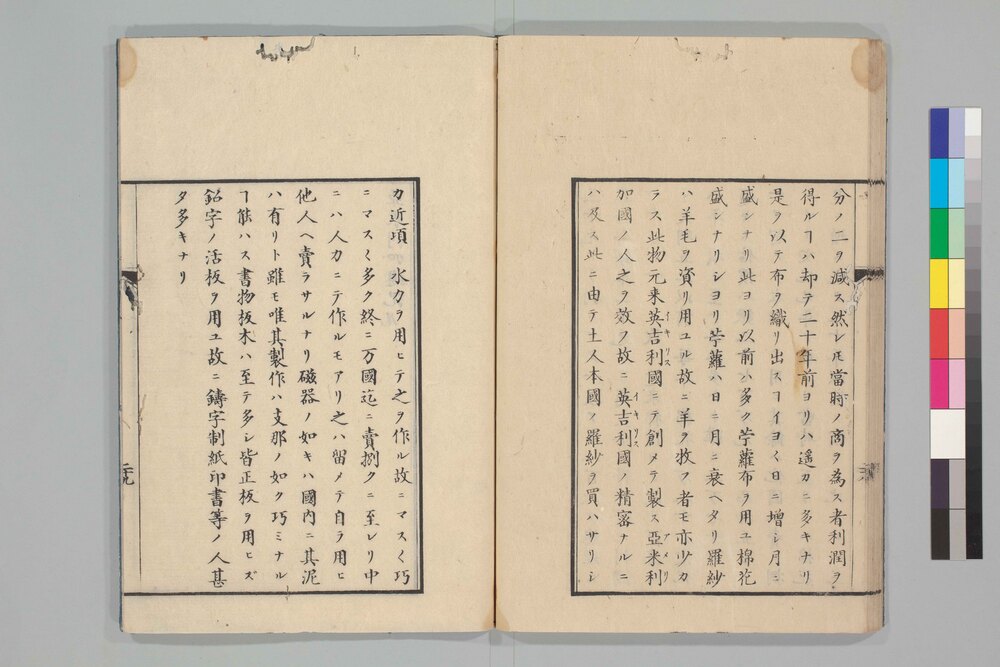 分ノ二ヲ減ス然レ𪜈當時ノ商ヲ為ス者利潤ヲ
得ルヿハ却テ二十年前ヨリハ遥カニ多キナリ
是ヲ以テ布ヲ織リ出スヿイヨ〱日ニ增シ月ニ
盛ンナリ此ヨリ以前ハ多ク苧蘿布ヲ用ユ棉花
盛ンナリシヨリ苧蘿ハ日ニ月ニ衰ヘタリ羅紗
ハ羊毛ヲ資リ用ユル故ニ羊ヲ牧フ者モ亦少カ
ラス此物元来英吉利國ニテ創メテ製ス亞米利
加國ノ人之ヲ效フ故ニ英吉利國ノ精密ナルニ
ハ及ス此ニ由テ土人本國ノ羅紗ヲ買ハサリシ
カ近項水力ヲ用ヒテ之ヲ作ル故ニマス〱巧
ニマス〱多ク終ニ万國迄ニ賣捌クニ至レリ中
ニハ人力ニテ作ルモアリ之ハ留メテ自ラ用ヒ
他人ヘ賣ラサルナリ磁器ノ如キハ國内ニ其泥
ハ有リト雖モ唯其製作ハ支那ノ如ク巧ミナル
ヿ能ハス書物板木ハ至テ多シ皆正板ヲ用ヒズ
鉛字ノ活板ヲ用ユ故ニ鑄字制紙印書等ノ人甚
タ多キナリ
二十九